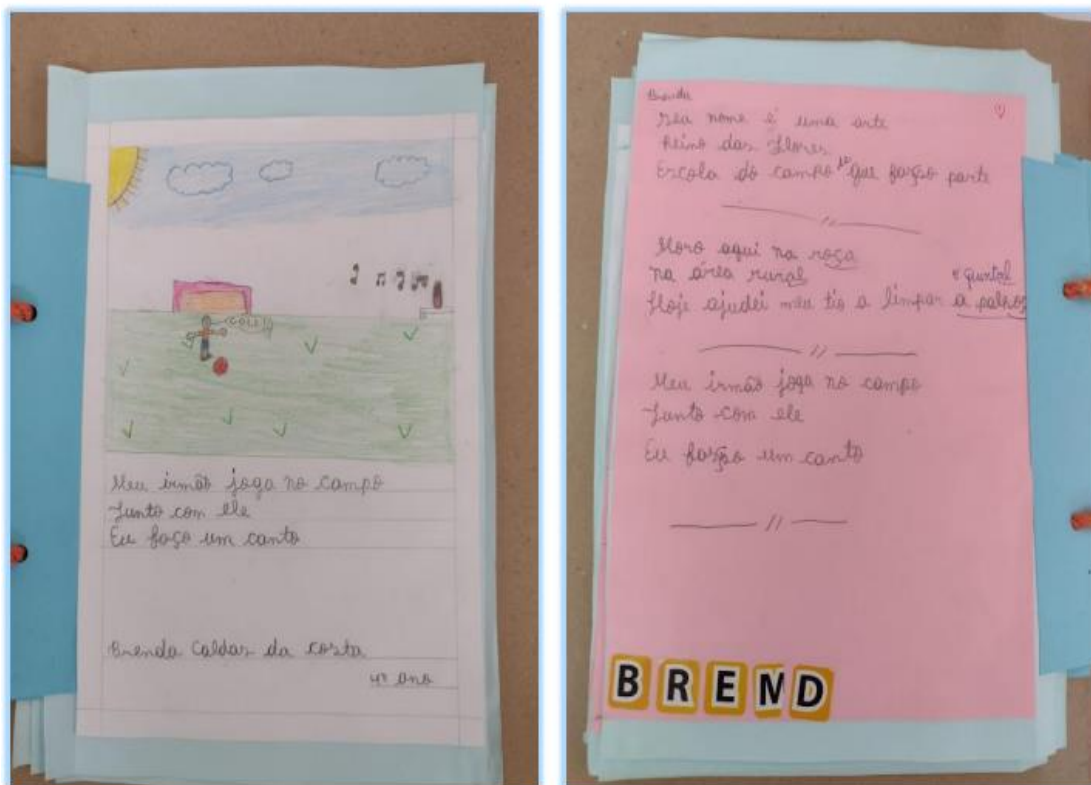 GOL!
Meu irmão joga no campo
Junto com ele
Eu faço um canto
Brenda Caldas da costa
4º ano
Brenda
Seu nome é uma arte
Reino das flores
Escola do campo que faço parte
Moro aqui na roça
na área rural
o quintal
Hoje ajudei meu tio a limpar a palhoça
Meu irmão joga no campo
Junto com ele
Eu faço um canto
BREND